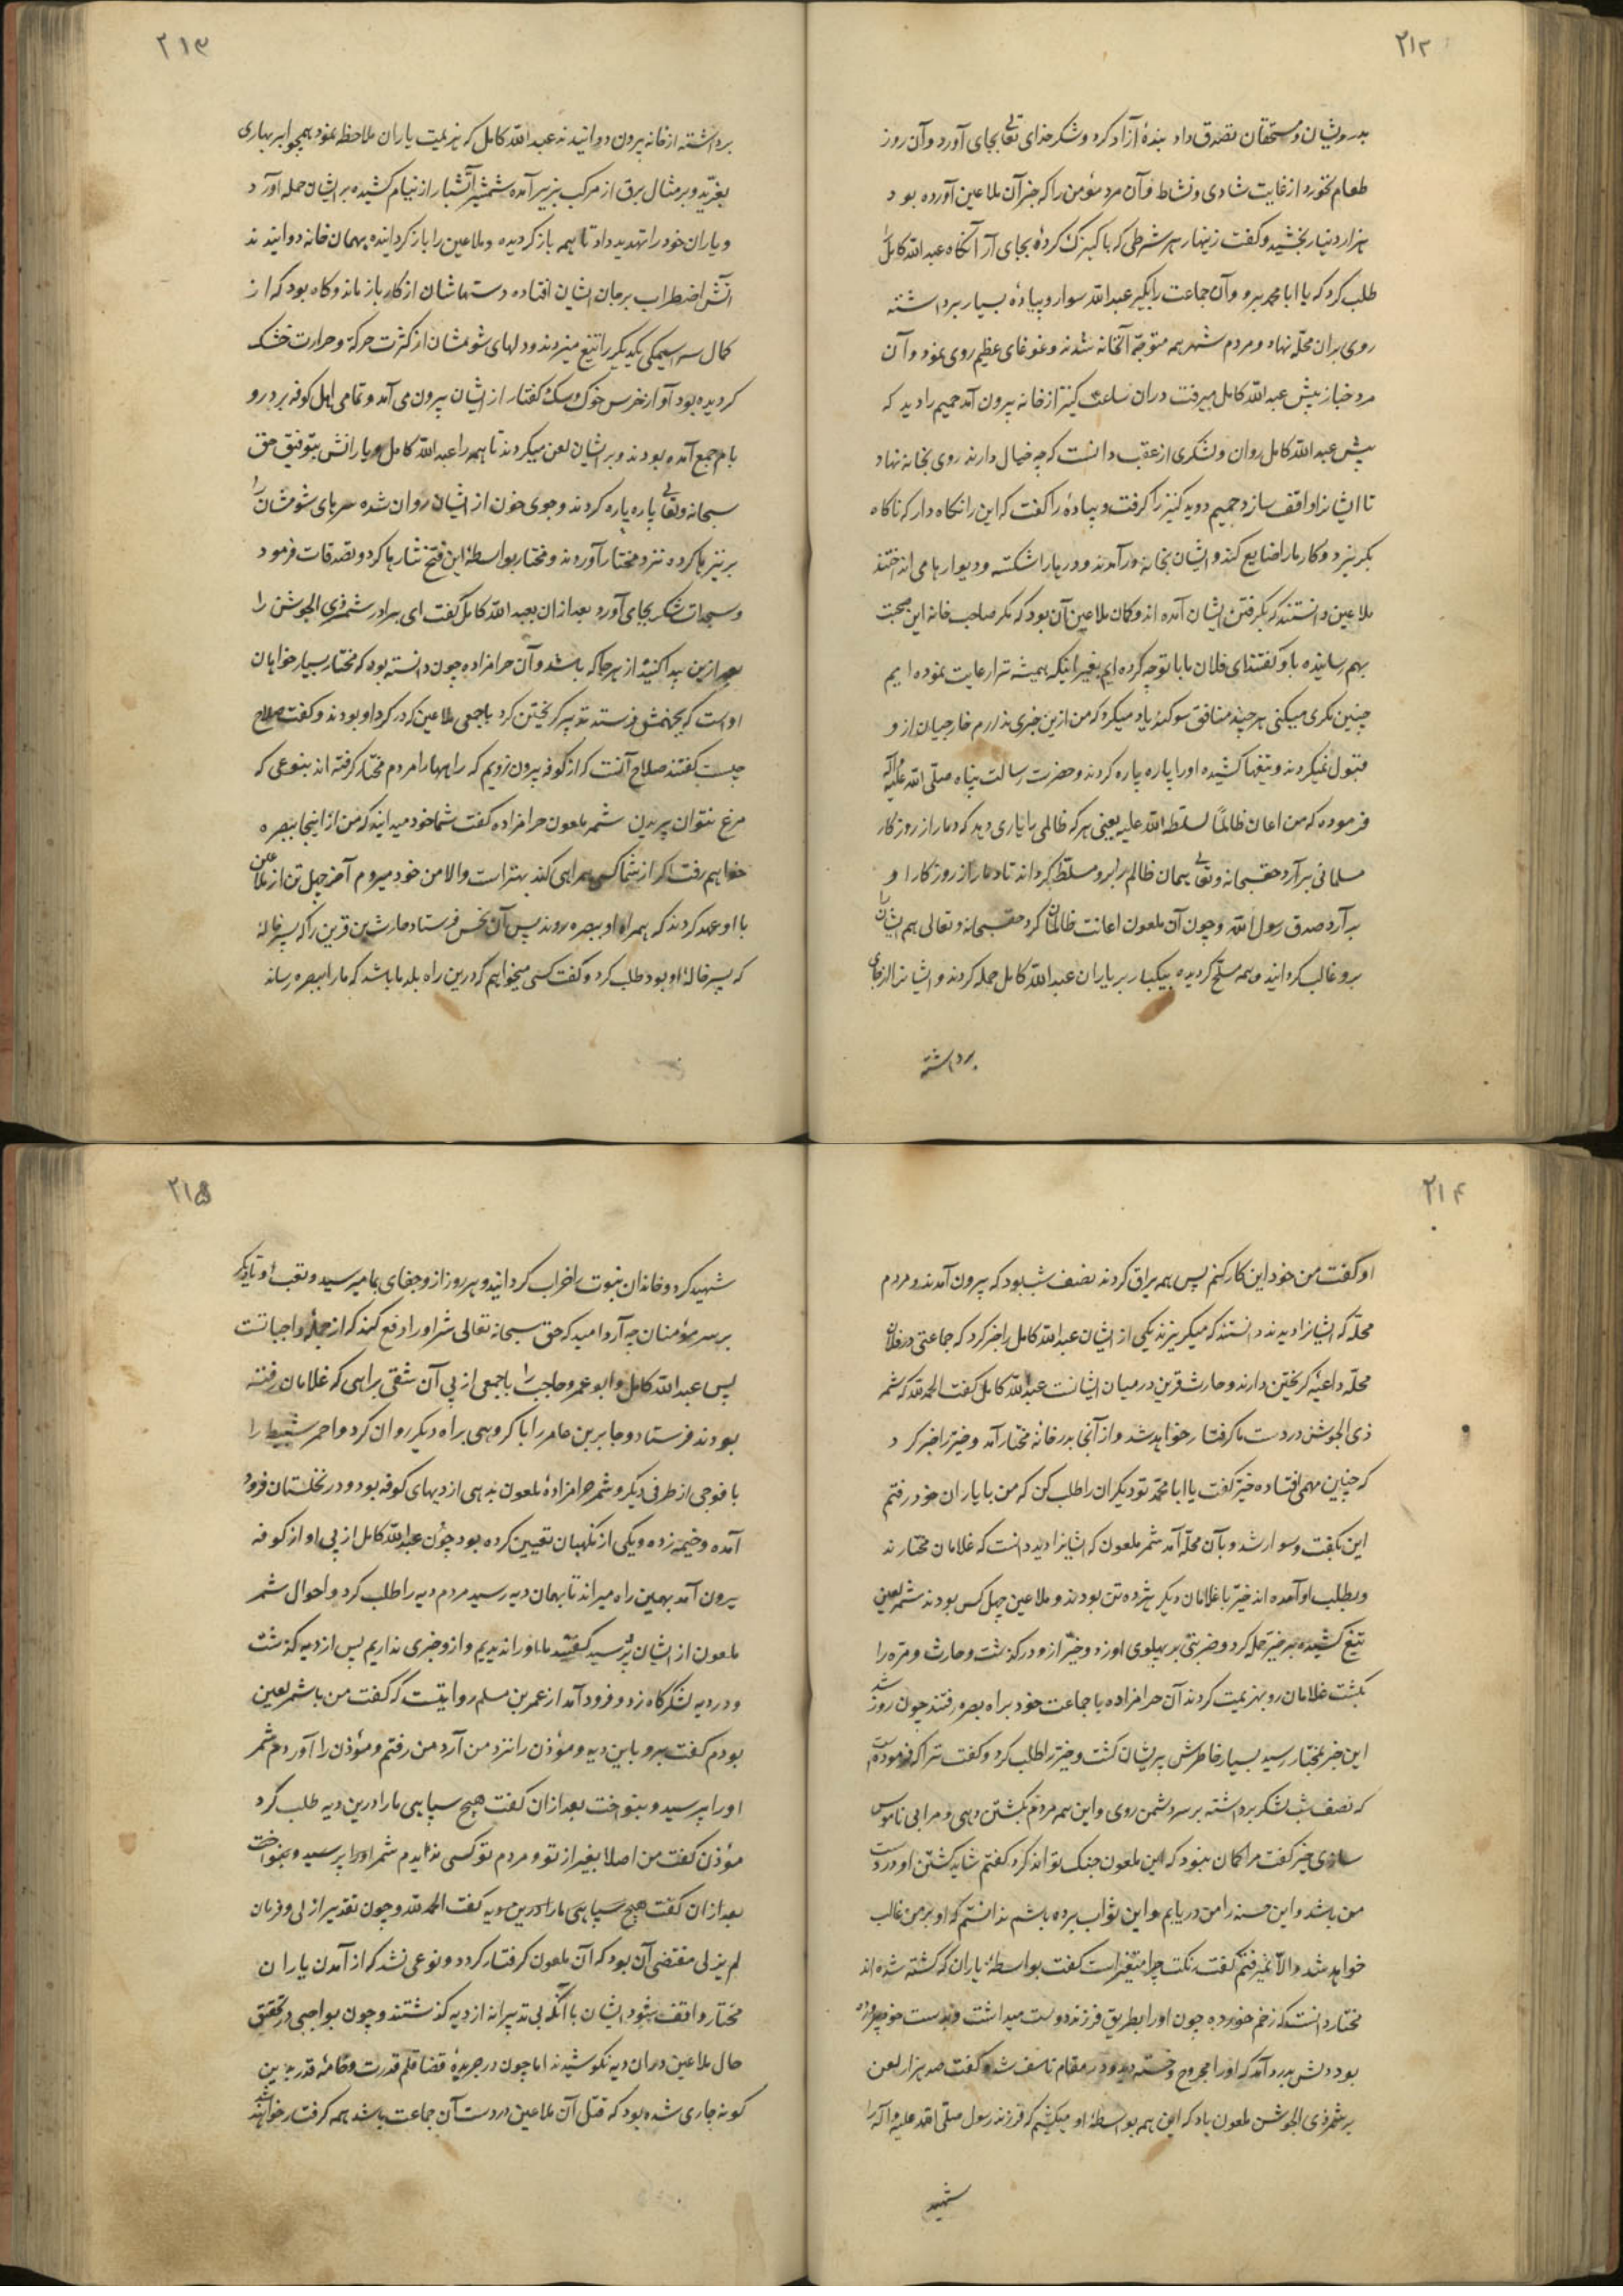 ۲۱۲
بدرویشان و مستحقان تصدق داد بنده آزاد کرد و شکر خدای تعالی بجای آورد و آن روز
طعام نخورد از غایت شادی و نشاط و آن مرد مؤمن را که خبر آن ملاعین آورده بود
هزار دینار بخشید و گفت زینهار هر شرطی که با کنیزک کردهٔ بجای آر آنگاه عبدالله کامل را
طلب کرد که یا ابا محمد برو و آن جماعت را بگیر عبدالله سوار و پیادهٔ بسیار برداشته
روی بران محلّه نهاد و مردم شهر همه متوجّه آنخانه شدند و غوغای عظیم روی نمود و آن
مرد خباز پیش عبدالله کامل میرفت دران ساعت کنیز از خانه بیرون آمد حمیم را دید که
پیش عبدالله کامل روان و لشکری از عقب دانست که چه خیال دارند روی بخانه نهاد
تا ایشانرا واقف سازد حمیم دوید کنیز را گرفت و پیادهٔ را گفت که این را نگاه دار که ناگاه
بگریزد و کار ما را ضایع کند و ایشان بخانه درآمدند و درها را شکسته و دیوارها می انداختند
ملاعین دانستند که بگرفتن ایشان آمده اند و گمان ملاعین آن بود که مگر صاحب خانه این صحبت
بهم رسانیده باو گفتند ای فلان با ما توجه کرده ایم بغیر اینکه همیشه ترا رعایت نموده ایم
چنین مکری میکنی هر چند منافق سوگند یاد میکرد که من ازین خبری ندارم خارجیان از و
قبول نمیکردند و تیغها کشیده او را پاره پاره کردند و حضرت رسالت پناه صلّی الله علیه و آله
فرموده که من اعان ظالمًا لسلّطه الله علیه یعنی هر که ظالمی را یاری دهد که دمار از روزگار
مسلمانی برآرد حقسبحانه و تعالی همان ظالم را برو مسلّط گرداند تا دمار از روزگار او
برآرد صدق رسول الله و چون آن ملعون اعانت ظالمان کرد حقسبحانه و تعالی هم ایشان را
برو غالب گردانید و همه مسلّح گردیده بیکبار بر یاران عبدالله کامل حمله کردند و ایشانرا از جای
برداشته
۲۱۳
برداشته از خانه بیرون دوانیدند عبدالله کامل که هزیمت یاران ملاحظه نمود همچو ابر بهاری
بغرّید و بر مثال برق از مرکب بزیر آمده شمشیر آتشبار از نیام کشیده بر ایشان حمله آورد
و یاران خود را تهدید داد تا همه باز گردیده و ملاعین را باز گردانیده بهمان خانه دوانیدند
آتش اضطراب بر جان ایشان افتاده دستهاشان از کار باز ماند و گاه بود که از
کمال سراسیمگی یکدیگر را تیغ میزدند و دلهای شومشان از کثرت حرکة و حرارت خشک
گردیده بود آواز خرس و خوک و سگ و کفتار از ایشان بیرون می آمد و تمامی اهل کوفه بر در و
بام جمع آمده بودند و بر ایشان لعن میکردند تا همه را عبدالله کامل و یارانش بتوفیق حق
سبحانه و تعالی پاره پاره کردند و جوی خون از ایشان روان شده سرهای شومشان را
بر نیزها کرده نزد مختار آوردند و مختار بواسطهٔ این فتح نثارها کرد و تصدقات فرمود
و سجدات شکر بجای آورد بعد ازان بعبدالله کامل گفت ای برادر شمر ذی الجوشن را
بعد ازین پیدا کنید از هر جا که باشد و آن حرامزاده چون دانسته بود که مختار بسیار خواهان
اوست که بجهنمش فرستد تدبیر گریختن کرد با جمعی ملاعین که در گرد او بودند و گفت صلاح
چیست گفتند صلاح آنست که از کوفه بیرون نرویم که راهها را مردم مختار گرفته اند بنوعی که
مرغ نتوان پریدن شمر ملعون حرامزاده گفت شما خود میدانید که من از اینجا ببصره
خواهم رفت اگر از شما کسی همراهی کند بهتر است والا من خود میروم آخر چهل تن از ملاعین
با او عهد کردند که همراه او ببصره روند پس آن نحس فرستاد حارث بن قرین را که پسر خاله
که پسر خالهٔ او بود طلب کرد و گفت کسی میخواهم که درین راه بلد ما باشد که ما را ببصره رساند
۲۱۴
او گفت من خود این کار کنم پس همه یراق کردند نصف شب بود که بیرون آمدند و مردم
محلّه که ایشانرا دیدند دانستند که میگریزند یکی از ایشان عبدالله کامل را خبر کرد که جماعتی در فلان
محلّه داعیهٔ گریختن دارند و حارث قرین در میان ایشانست عبدالله کامل گفت الحمدلله که شمر
ذی الجوشن در دست ما گرفتار خواهد شد و از آنجا بدر خانهٔ مختار آمد و خیّر را خبر کرد
که چنین مهمی افتاده خیّر گفت یا ابا محمّد تو دیگران را طلب کن که من با یاران خود رفتم
این بگفت و سوار شد و بآن محلّه آمد شمر ملعون که ایشانرا دید دانست که غلامان مختارند
و بطلب او آمده اند خیّر با غلامان دیگر هژده تن بودند و ملاعین چهل کس بودند شمر لعین
تیغ کشیده بر خیّر حمله کرد و ضربتی بر پهلوی او زد و خیّر ازو در گذشت و حارث و مره را
بکشت غلامان رو بهزیمت کردند آن حرامزاده با جماعت خود براه بصره رفتند چون روز شد
این خبر بمختار رسید بسیار خاطرش پریشان گشت و خیّر را طلب کرد و گفت ترا که فرموده است
که نصف شب لشکر برداشته بر سر دشمن روی و این همه مردم بکشتن دهی و مرا بی ناموس
سازی خیّر گفت مرا گمان نبود که این ملعون جنگ تواند کرد گفتم شاید کشتن او در دست
من باشد و این حسنه را من دریابم و این ثواب برده باشم ندانستم که او بر من غالب
خواهد شد والا نمیرفتم گفت رنگت چرا متغیّر است گفت بواسطهٔ یاران که کشته شده اند
مختار دانست که زخم خورده چون او را بطریق فرزند دوست میداشت و بدست خود پرورده
بود دلش بدرد آمد که او را مجروح و خسته دید و در مقام تاسف شد و گفت صد هزار لعن
بر شمر ذی الجوشن ملعون باد که این همه بواسطهٔ او میکشیم که فرزند رسول صلّی الله علیه و آله را
شهید
۲۱۵
شهید کرد و خاندان نبوت را خراب گردانید و هر روز ازو جفای بما میرسید و تعب او تا دیگر
بر سر مؤمنان چه آرد امید که حق سبحانه تعالی شر او را دفع کند که از جملهٔ واجباتست
پس عبدالله کامل و ابو عمر و حاجب را با جمعی از پی آن شقی براهی که غلامان رفته
بودند فرستاد و جابر بن عامر را با گروهی براه دیگر روان کرد و احمر شمیط را
با فوجی از طرفی دیگر و شمر حرامزادهٔ ملعون بدهی از دیهای کوفه بود و در نخلستان فرود
آمده و خیمه زده و یکی از نگهبان تعیین کرده بود چون عبدالله کامل از پی او از کوفه
بیرون آمد بهمین راه میراند تا بهمان دیه رسید مردم دیه را طلب کرد و احوال شمر
ملعون از ایشان پرسید گفتند ما او را ندیدیم و ازو خبری نداریم پس از دیه گذشت
و در دیه لشکرگاه زد و فرود آمد از عمر بن مسلم روایتست که گفت من با شمر لعین
بودم گفت برو باین دیه و مؤذن را نزد من آر من رفتم و مؤذن را آوردم شمر
او را پرسید و بنواخت بعد ازان گفت هیچ سپاهی ما را درین دیه طلب کرد
مؤذن گفت من اصلا بغیر از تو و مردم تو کسی ندیدم شمر او را پرسید و بنواخت
بعد ازان گفت هیچ سپاهی ما را درین دیه گفت الحمدلله و چون تقدیر ازلی و فرمان
لم یزلی مقتضی آن بود که آن ملعون گرفتار گردد و نوعی نشد که از آمدن یاران
مختار واقف شود ایشان با آنکه بی تدبیرانه از دیه گذشتند و چون بواجبی در تحقیق
حال ملاعین دران دیه نکوشیدند اما چون در جریدهٔ قضا قلم قدرت و خامهٔ قدر بدین
گونه جاری شده بود که قتل آن ملاعین در دست آن جماعت باشد همه گرفتار خواهند شد